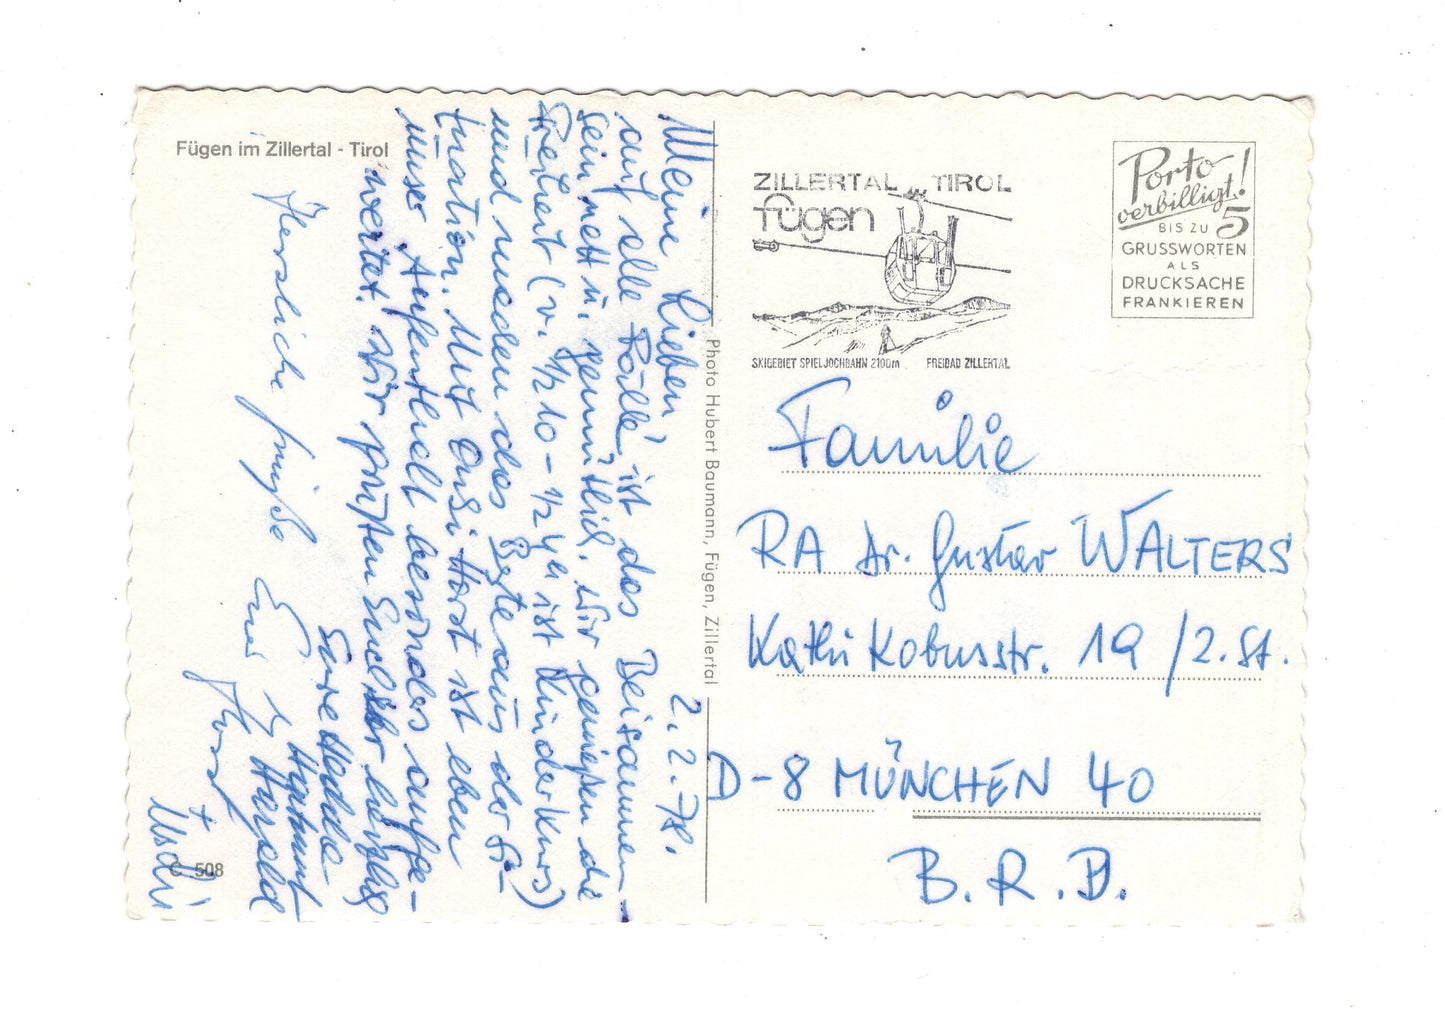 Fügen im Zillertal - Tirol
2.2.78.
Meine Lieben!
auf alle Fälle ist das Beisammen-
sein nett u. gemütlich. Wir genießen die
Freiheit (v. 1/2 10 - 1/2 4h ist Kinderkurs)
und machen das Beste aus der Si-
tuation. Mit Onsi Horst ist eben
unser Aufenthalt besonders aufge-
wertet. Wir grüßen Euch sehr herzlich
Eure Hedda
Hartmut
Harald
Herzliche Grüße Euer
Horst
+ Uschi
C 508
Photo Hubert Baumann, Fügen, Zillertal
ZILLERTAL TIROL
Fügen
SKIGEBIET SPIELJOCHBAHN 2100m FREIBAD ZILLERTAL
Porto
verbilligt!
BIS ZU 5
GRUSSWORTEN
ALS
DRUCKSACHE
FRANKIEREN
Familie
RA Dr. Gustav WALTERS
Kathi Kobusstr. 19 / 2. St.
D-8 MÜNCHEN 40
B.R.D.